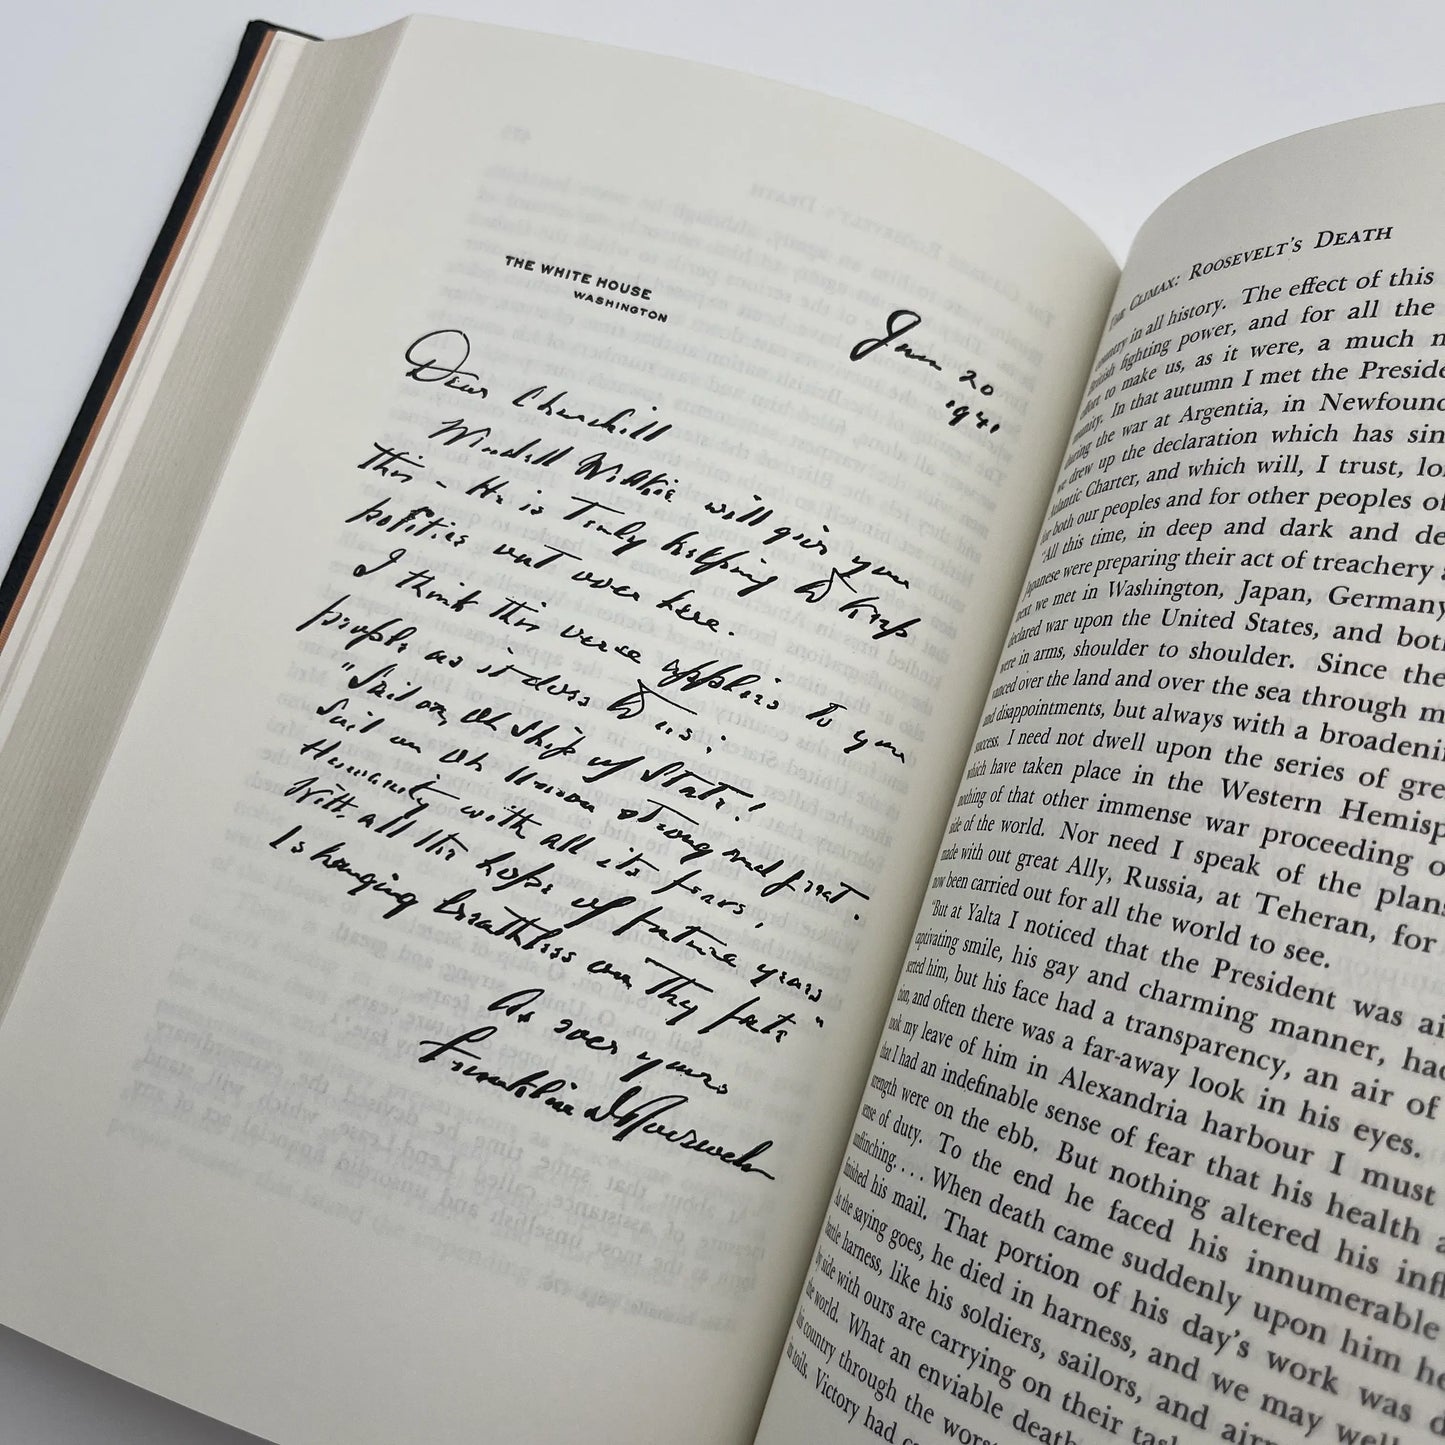 THE WHITE HOUSE
WASHINGTON
Jan 20
1941
Dear Churchill
Wendell Willkie will give you
this – He is truly helping to keep
politics out over here.
I think this verse applies to you
people as it does to us:
"Sail on, Oh Ship of State!
Sail on Oh Union strong and great.
Humanity with all its fears,
With all the hope of future years
Is hanging breathless on thy fate"
As ever yours
Franklin D Roosevelt
THE CLIMAX: ROOSEVELT'S DEATH
country in all history. The effect of this
British fighting power, and for all the
effort to make us, as it were, a much
In that autumn I met the
during the war at Argentia, in
we drew up the declaration which has
Atlantic Charter, and which will, I trust,
for both our peoples and for other peoples of
"All this time, in deep and dark and
Japanese were preparing their act of treachery
next we met in Washington, Japan, Germany
declared war upon the United States, and both
were in arms, shoulder to shoulder. Since
over the land and over the sea through
and disappointments, but always with a
success. I need not dwell upon the series of
which have taken place in the Western
nothing of that other immense war proceeding
side of the world. Nor need I speak of the plans
made with out great Ally, Russia, at Teheran, for
now been carried out for all the world to see.
"But at Yalta I noticed that the President was
captivating smile, his gay and charming manner,
him, but his face had a transparency, an air of
and often there was a far-away look in his eyes.
took my leave of him in Alexandria harbour I must
that I had an indefinable sense of fear that his health
strength were on the ebb. But nothing altered his
sense of duty. To the end he faced his innumerable
unflinching. . . . When death came suddenly upon him
finished his mail. That portion of his day's work was
As the saying goes, he died in harness, and we may
battle harness, like his soldiers, sailors, and
by side with ours are carrying on their
the world. What an enviable
his country through the
in toils. Victory had